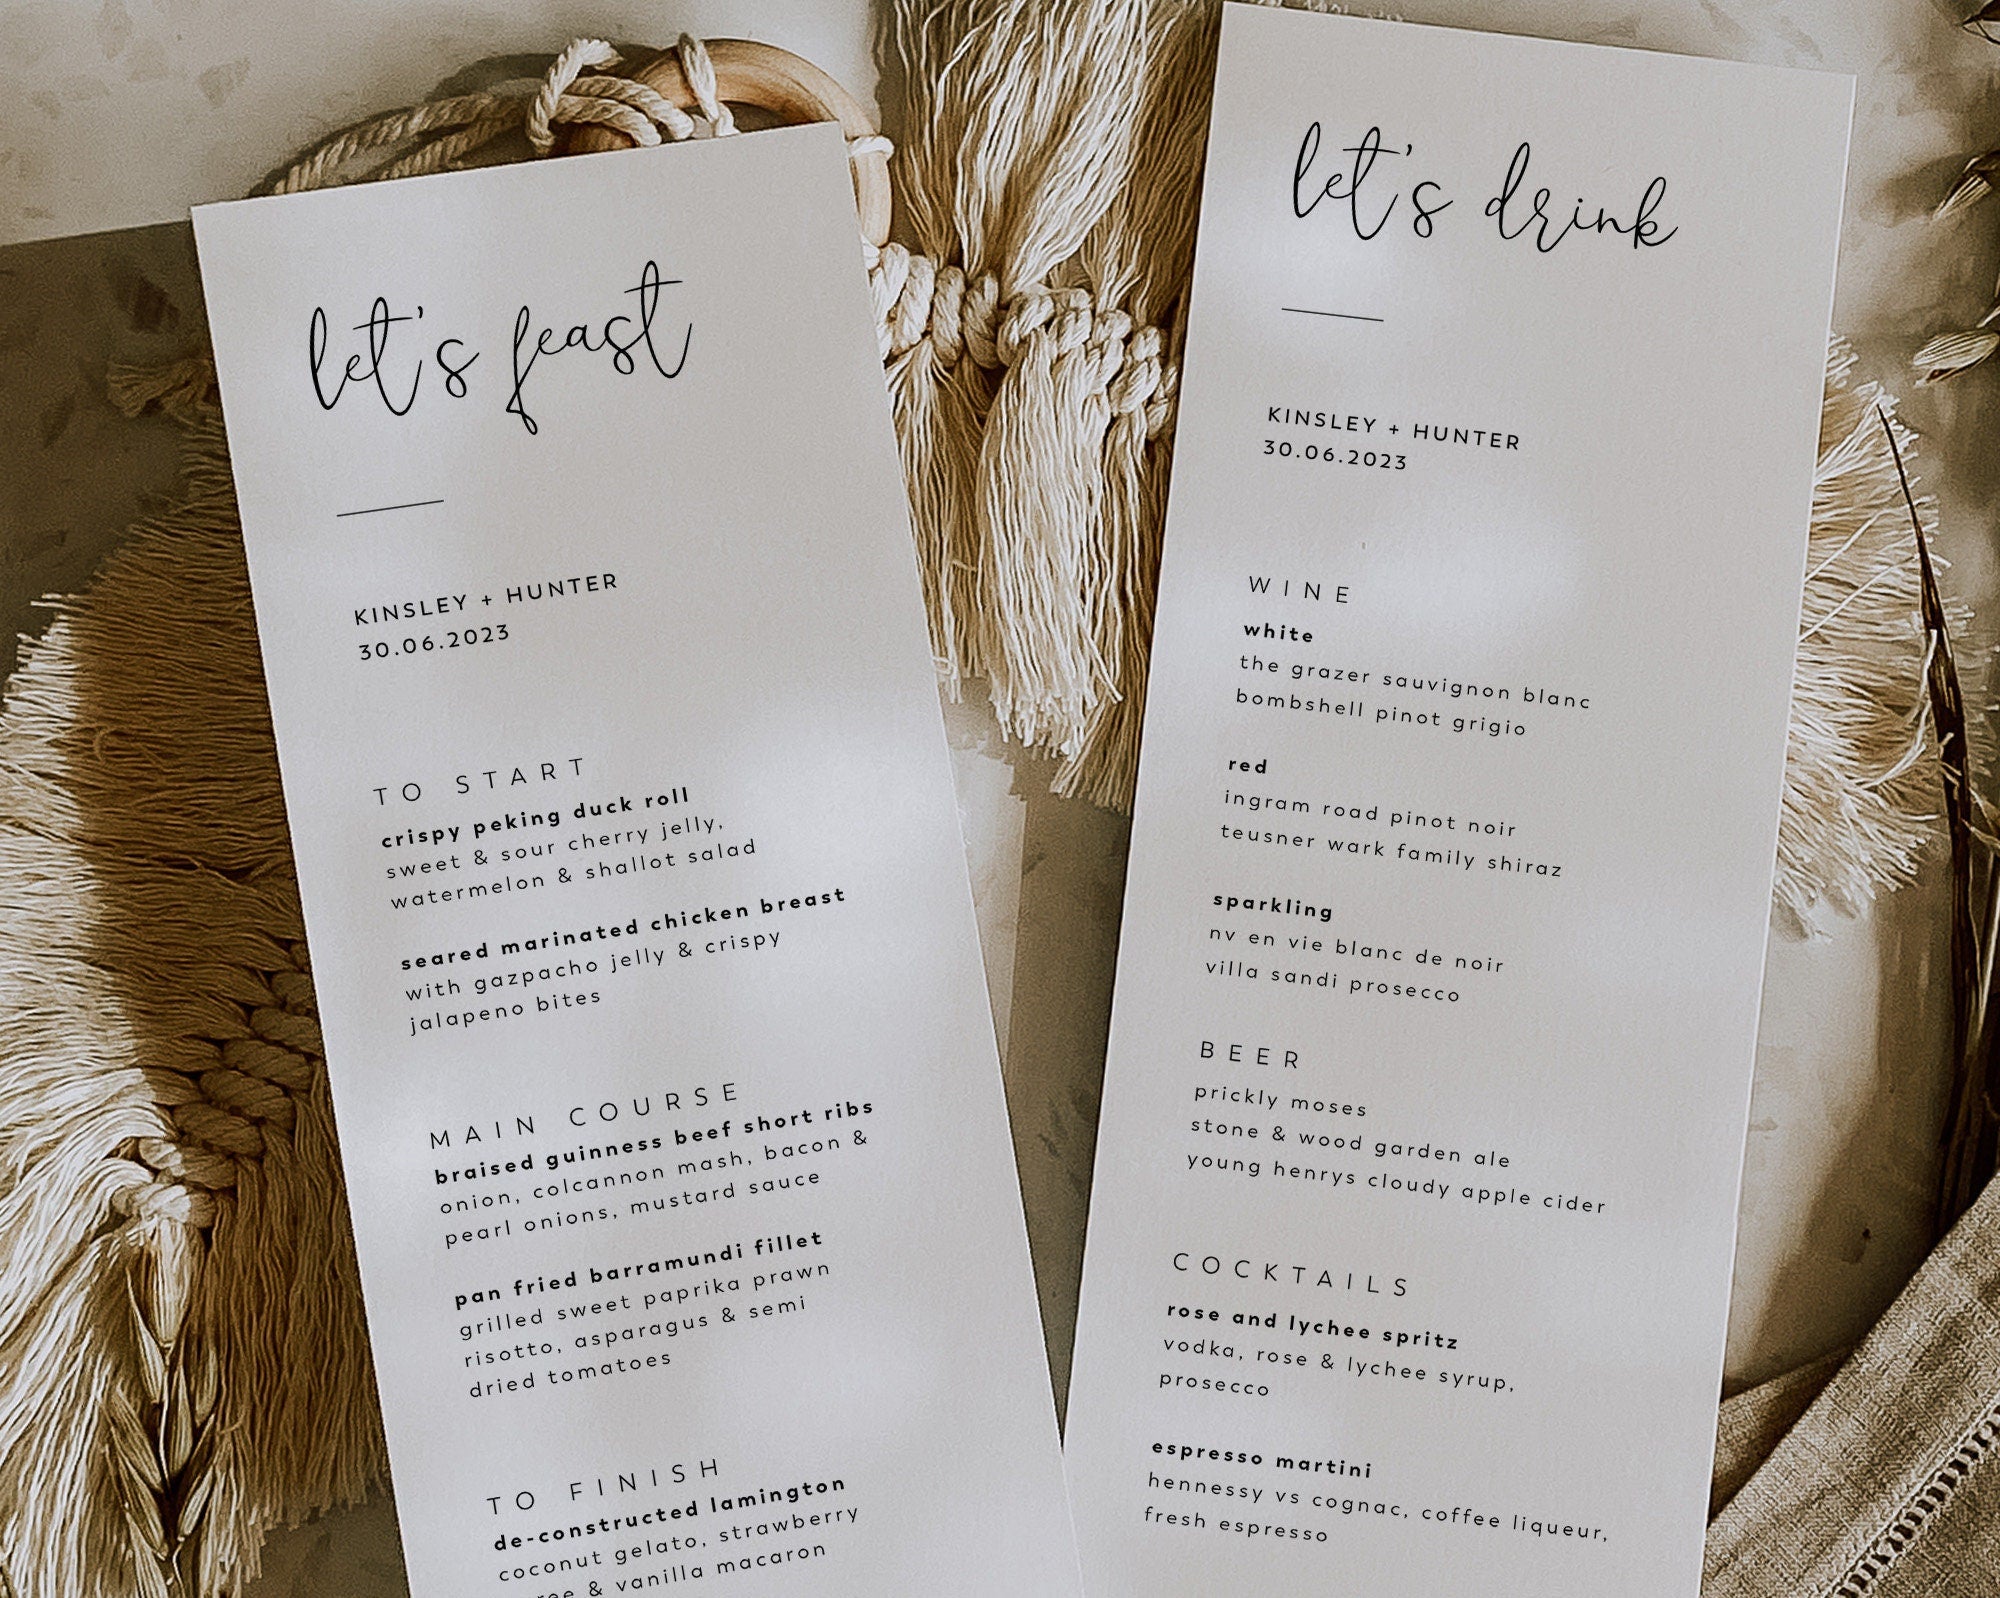 let's feast
KINSLEY + HUNTER
30.06.2023
TO START
crispy peking duck roll
sweet & sour cherry jelly,
watermelon & shallot salad
seared marinated chicken breast
with gazpacho jelly & crispy
jalapeno bites
MAIN COURSE
braised guinness beef short ribs
onion, colcannon mash, bacon &
pearl onions, mustard sauce
pan fried barramundi fillet
grilled sweet paprika prawn
risotto, asparagus & semi
dried tomatoes
TO FINISH
de-constructed lamington
coconut gelato, strawberry
& vanilla macaron
let's drink
KINSLEY + HUNTER
30.06.2023
WINE
white
the grazer sauvignon blanc
bombshell pinot grigio
red
ingram road pinot noir
teusner wark family shiraz
sparkling
nv en vie blanc de noir
villa sandi prosecco
BEER
prickly moses
stone & wood garden ale
young henrys cloudy apple cider
COCKTAILS
rose and lychee spritz
vodka, rose & lychee syrup,
prosecco
espresso martini
hennessy vs cognac, coffee liqueur,
fresh espresso